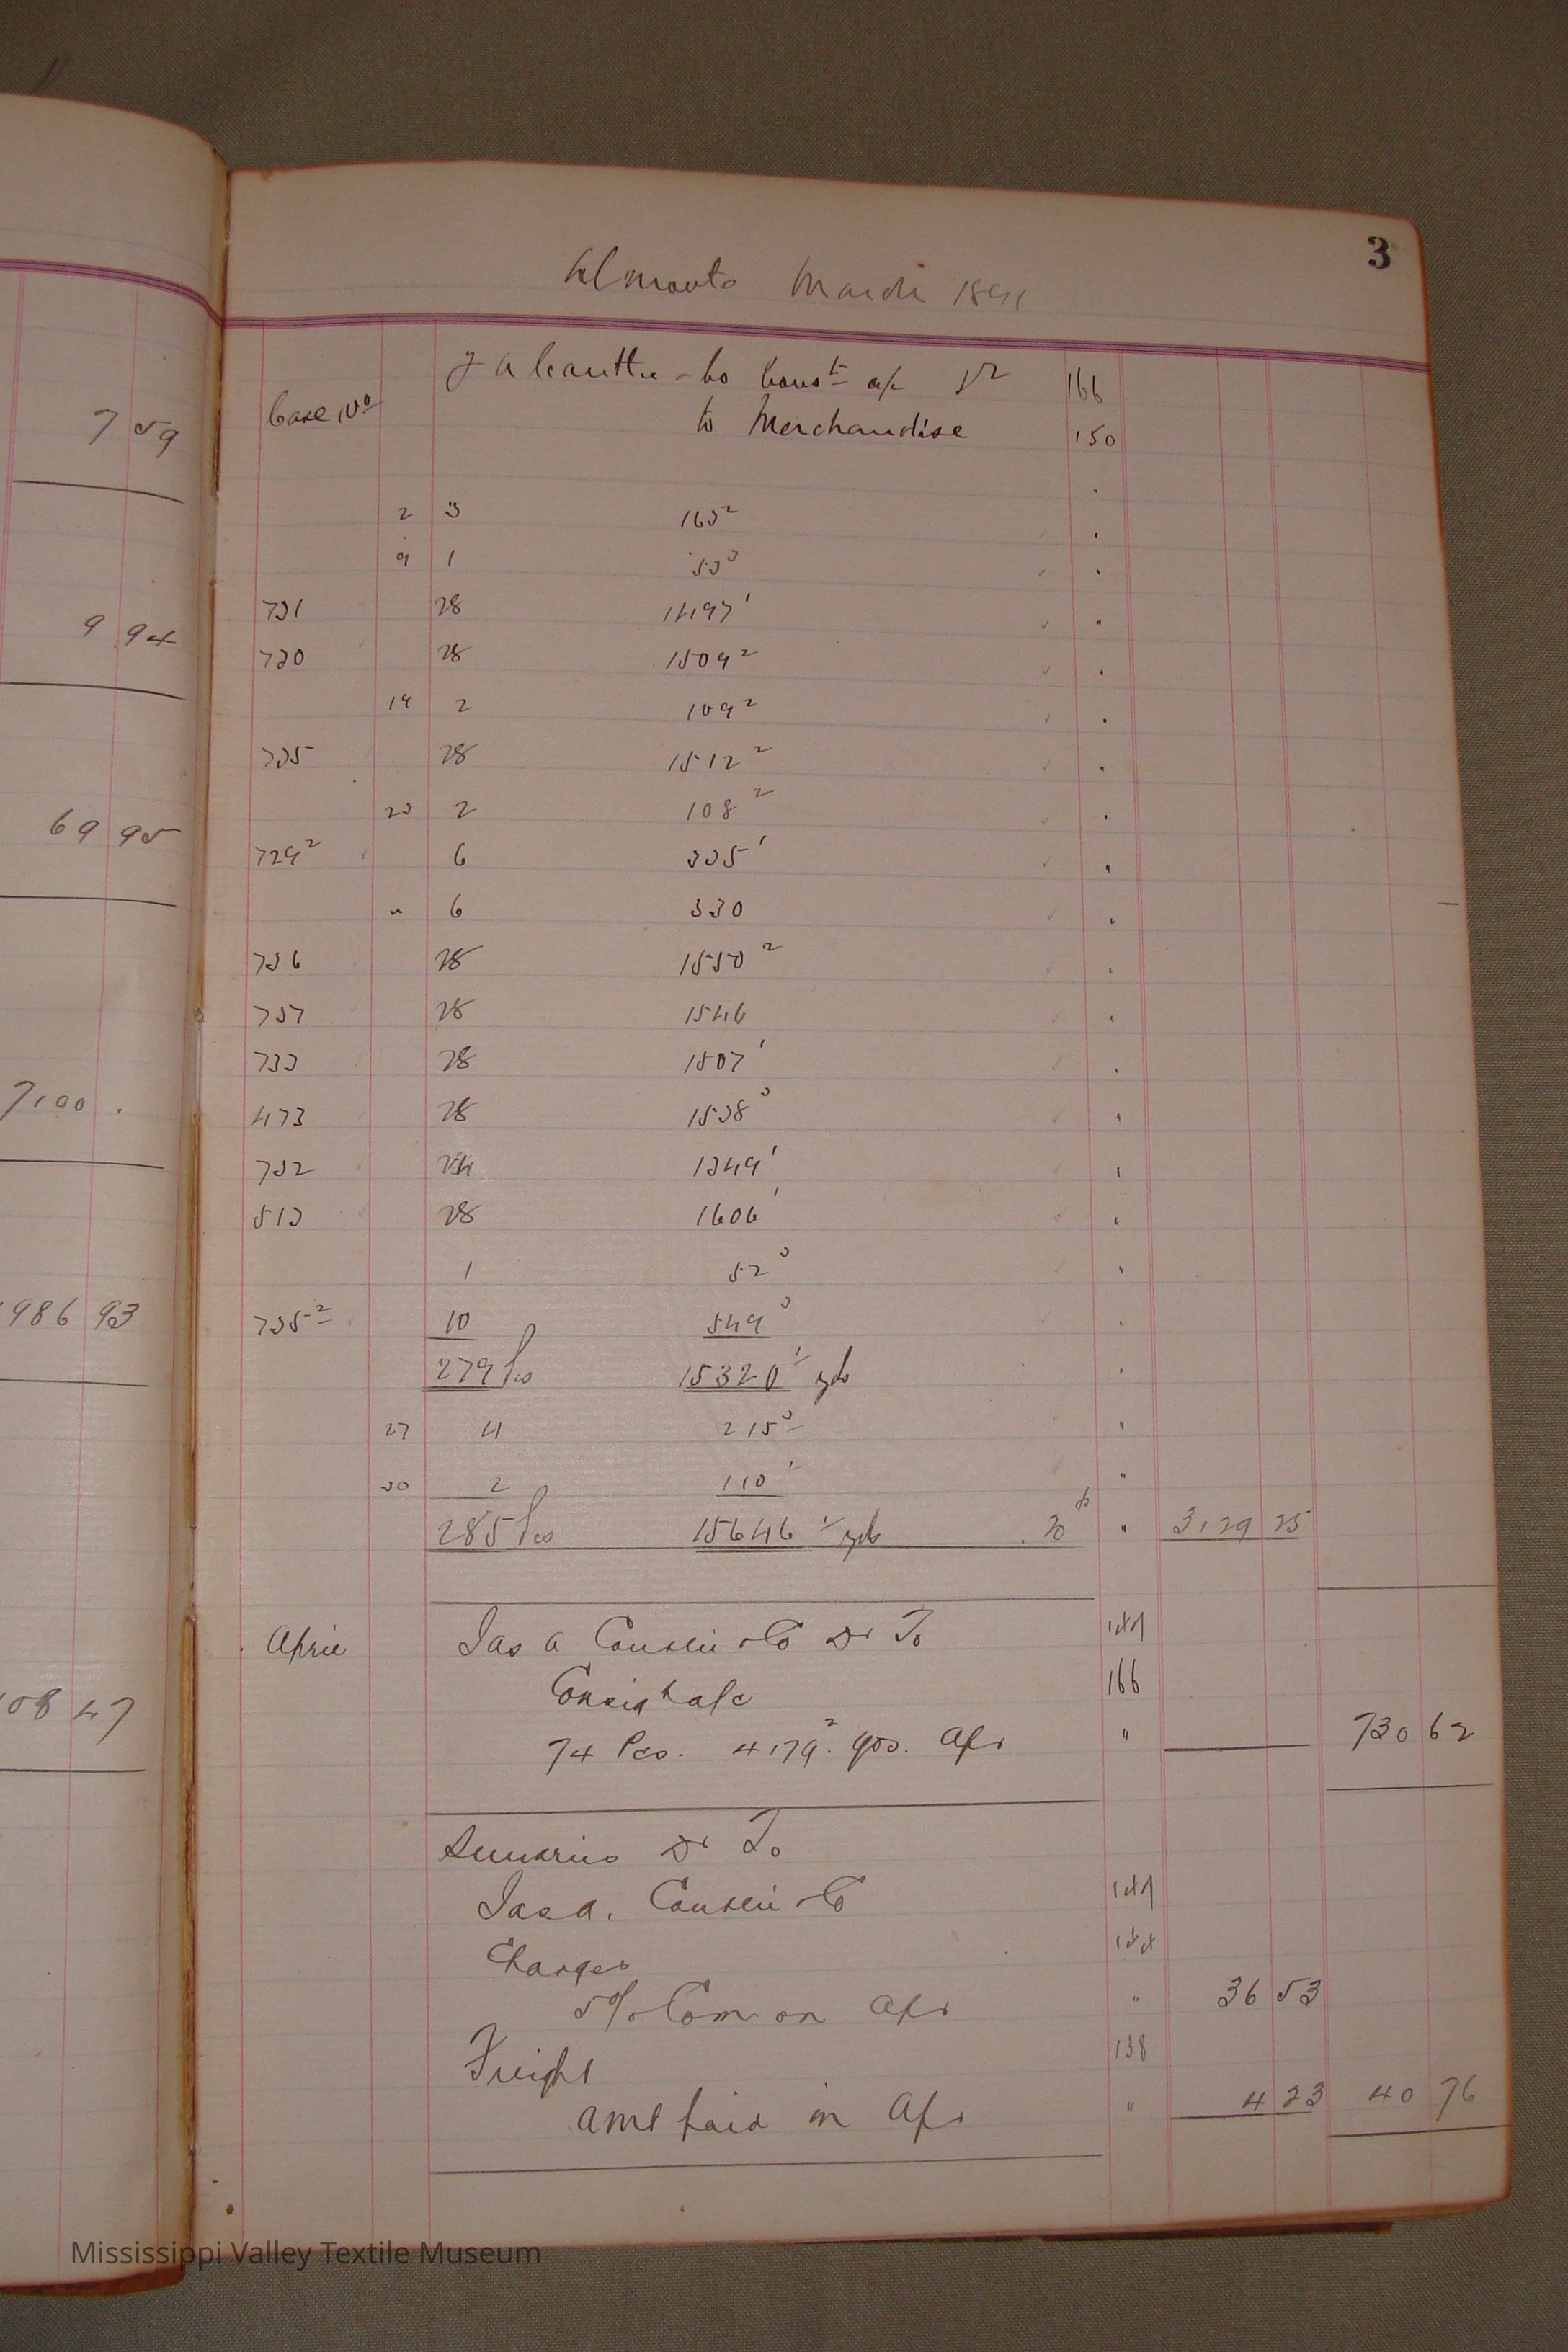 7 59
9 94
69 95
7,00 .
986 93
08 47
3
Almonte March 1891
J A Cantlie & Co Const a/c Dr 166
Case No
to Merchandise 150
2 3 165²
9 1 53³
731 28 1497¹
730 28 1509²
19 2 109²
735 28 1512²
23 2 108²
729² 6 335¹
" 6 330
736 28 1550²
737 28 1546
733 28 1507¹
473 28 1538³
732 24 1349¹
513 28 1606¹
1 52³
735² 10 549³
279 Pcs 15320¹ yds
27 4 215³
30 2 110¹
285 Pcs 15646¹ yds 20 " 3,129 25
April Jas A Cantlie & Co Dr To 141
Consigt a/c 166
74 Pcs. 4,179.² yds. Apr " 730 62
Sundries Dr To
Jas A. Cantlie & Co 141
Charges 144
5% Com on Apr " 36 53
Freight 138
Amt paid in Apr " 4 23 40 76
Mississippi Valley Textile Museum